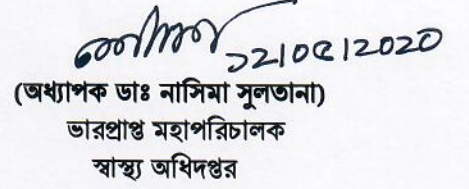 ১২|০৫|২০২০
(অধ্যাপক ডাঃ নাসিমা সুলতানা)
ভারপ্রাপ্ত মহাপরিচালক
স্বাস্থ্য অধিদপ্তর